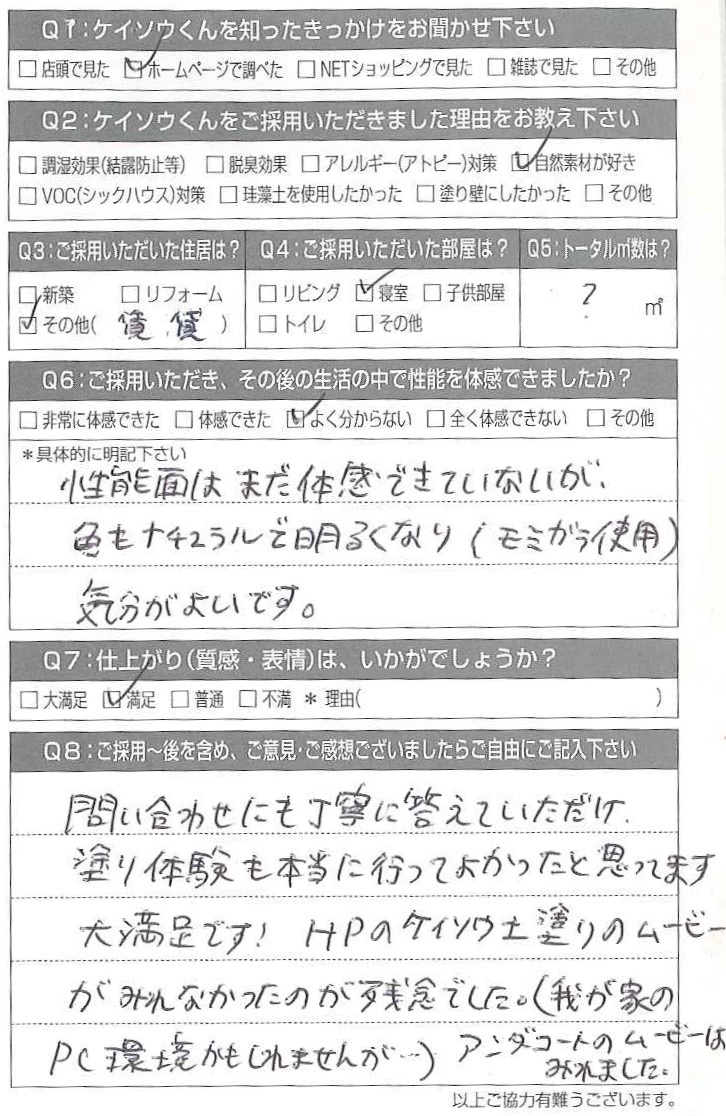 Q1:ケイソウくんを知ったきっかけをお聞かせ下さい
□店頭で見た ☑ホームページで調べた □NETショッピングで見た □雑誌で見た □その他
Q2:ケイソウくんをご採用いただきました理由をお教え下さい
□調湿効果(結露防止等) □脱臭効果 □アレルギー(アトピー)対策 ☑自然素材が好き
□VOC(シックハウス)対策 □珪藻土を使用したかった □塗り壁にしたかった □その他
Q3:ご採用いただいた住居は? Q4:ご採用いただいた部屋は? Q5:トータル㎡数は?
□新築 □リフォーム □リビング ☑寝室 □子供部屋 ? ㎡
☑その他(賃貸) □トイレ □その他
Q6:ご採用いただき、その後の生活の中で性能を体感できましたか?
□非常に体感できた □体感できた ☑よく分からない □全く体感できない □その他
*具体的に明記下さい
性能面はまだ体感できていないが、
色もナチュラルで明るくなり(モミガラ使用)
気分がよいです。
Q7:仕上がり(質感・表情)は、いかがでしょうか?
□大満足 ☑満足 □普通 □不満 *理由( )
Q8:ご採用〜後を含め、ご意見・ご感想ございましたらご自由にご記入下さい
問い合わせにも丁寧に答えていただけ、
塗り体験も本当に行ってよかったと思ってます
大満足です! HPのケイソウ土塗りのムービー
がみれなかったのが残念でした。(我が家の
PC環境かもしれませんが…) アンダコートのムービーは
みれました。
以上ご協力有難うございます。